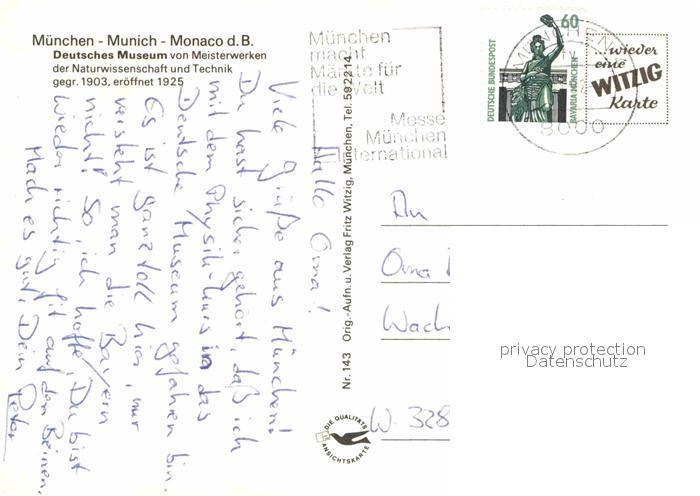 München - Munich - Monaco d. B.
Deutsches Museum von Meisterwerken
der Naturwissenschaft und Technik
gegr. 1903, eröffnet 1925
Hallo Oma!
Viele Grüße aus München!
Du hast sicher gehört, daß ich
mit dem Physik-Kurs in das
Deutsche Museum gefahren bin.
Es ist ganz toll hier, nur
versteht man die Bayern
nicht! So, ich hoffe, Du bist
wieder richtig fit auf den Beinen.
Mach es gut, Dein Peter
Nr. 143 Orig.-Aufn. u. Verlag Fritz Witzig, München, Tel. 592214
München
macht
Märkte für
die Welt
Messe
München
International
DEUTSCHE BUNDESPOST
60
BAVARIA MÜNCHEN
MÜNCHEN
8000
...wieder
eine
WITZIG
Karte
An
Oma
Wach
W-328
privacy protection
Datenschutz
DIE QUALITÄTS
ANSICHTSKARTE